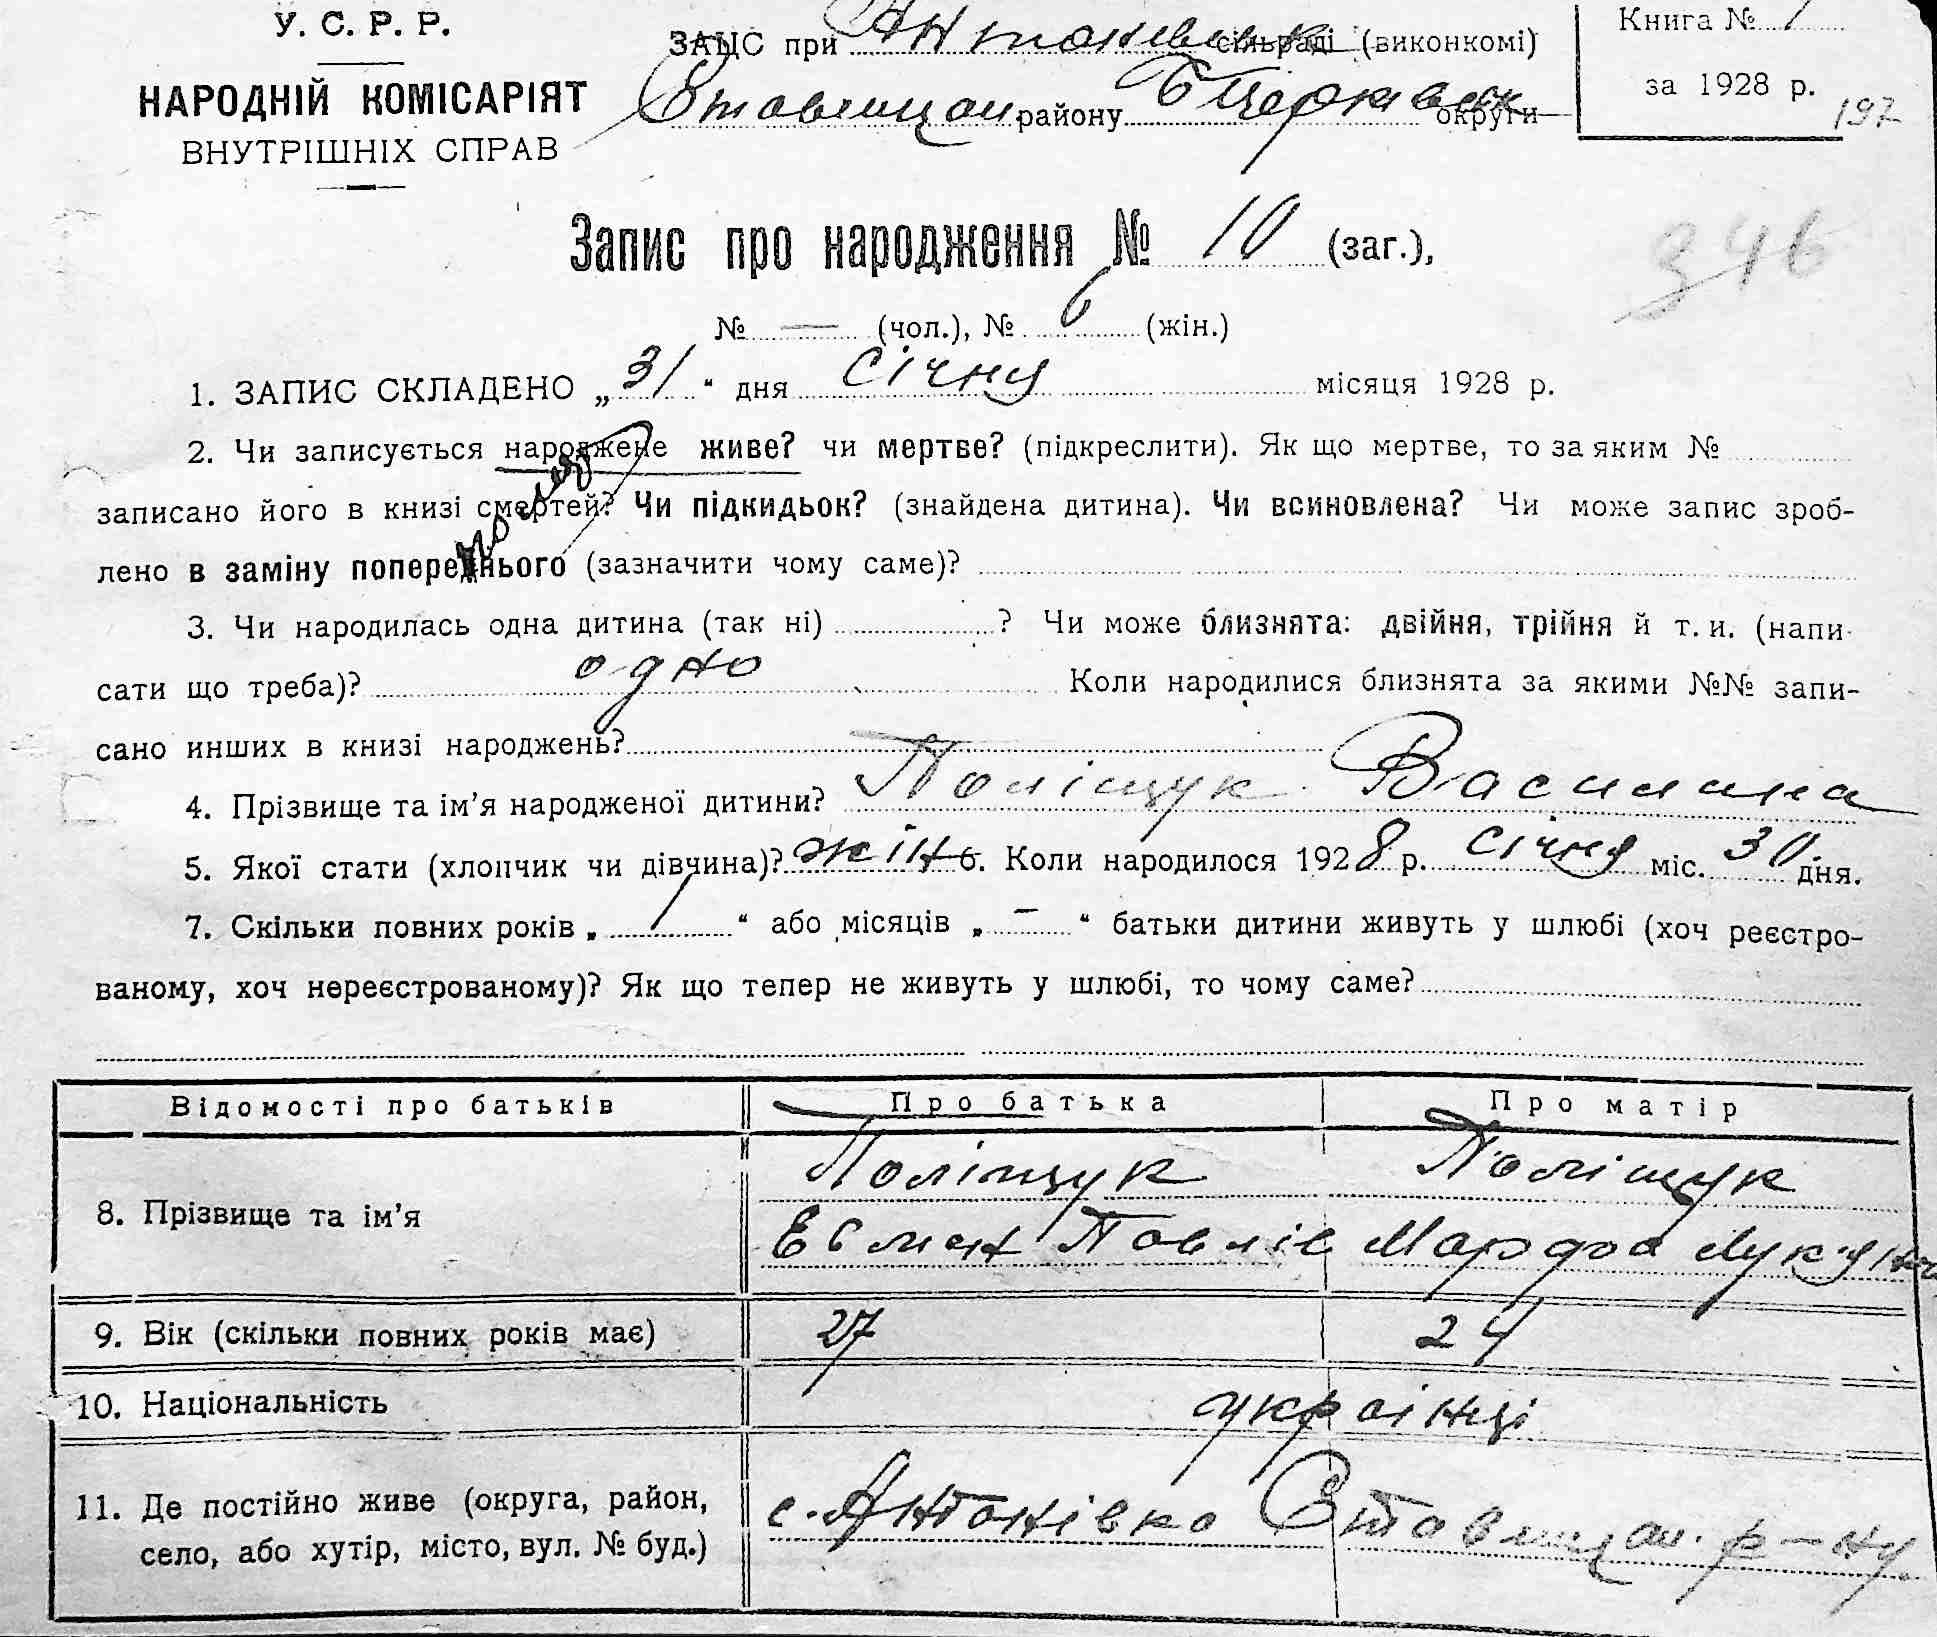 У. С. Р. Р.
НАРОДНІЙ КОМІСАРІЯТ
ВНУТРІШНІХ СПРАВ
ЗАЦС при Антонівськ сільраді (виконкомі)
Ставищан. району Б Церківськ округи
Книга № 1
за 1928 р.
197
346
Запис про народження № 10 (заг.),
№ — (чол.), № 6 (жін.)
1. ЗАПИС СКЛАДЕНО „31“ дня січня місяця 1928 р.
2. Чи записується народжене живе? чи мертве? (підкреслити). Як що мертве, то за яким №
записано його в книзі смертей? Чи підкидьок? (знайдена дитина). Чи всиновлена? Чи може запис зроб-
лено в заміну попереднього (зазначити чому саме)?
3. Чи народилась одна дитина (так ні) ? Чи може близнята: двійня, трійня й т. и. (напи-
сати що треба)? одно Коли народилися близнята за якими №№ запи-
сано инших в книзі народжень?
4. Прізвище та ім’я народженої дитини? Поліщук Василина
5. Якої стати (хлопчик чи дівчина)? жін. Коли народилося 1928 р. січня міс. 30 дня.
7. Скільки повних років „ 1 “ або місяців „ – “ батьки дитини живуть у шлюбі (хоч реєстро-
ваному, хоч нереєстрованому)? Як що тепер не живуть у шлюбі, то чому саме?
Відомості про батьків Про батька Про матір
8. Прізвище та ім’я Поліщук Поліщук
Павлів Лук'ян
9. Вік (скільки повних років має) 27 24
10. Національність українці
11. Де постійно живе (округа, район,
село, або хутір, місто, вул. № буд.)
с. Антонівка Ставищан. р-ну.